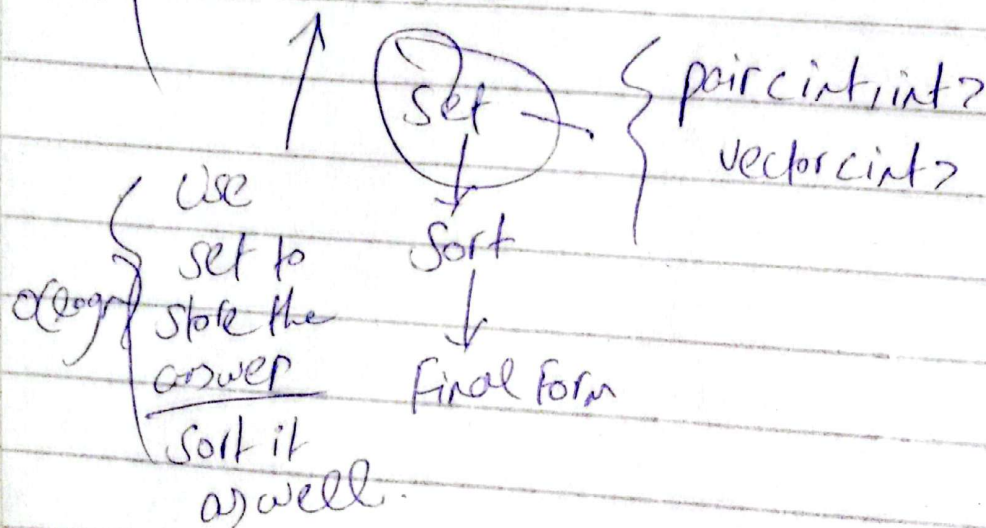 Set
pair<int,int>
vector<int>
Sort
Final Form
Use
set to
store the
answer
sort it
as well.
O(logn)